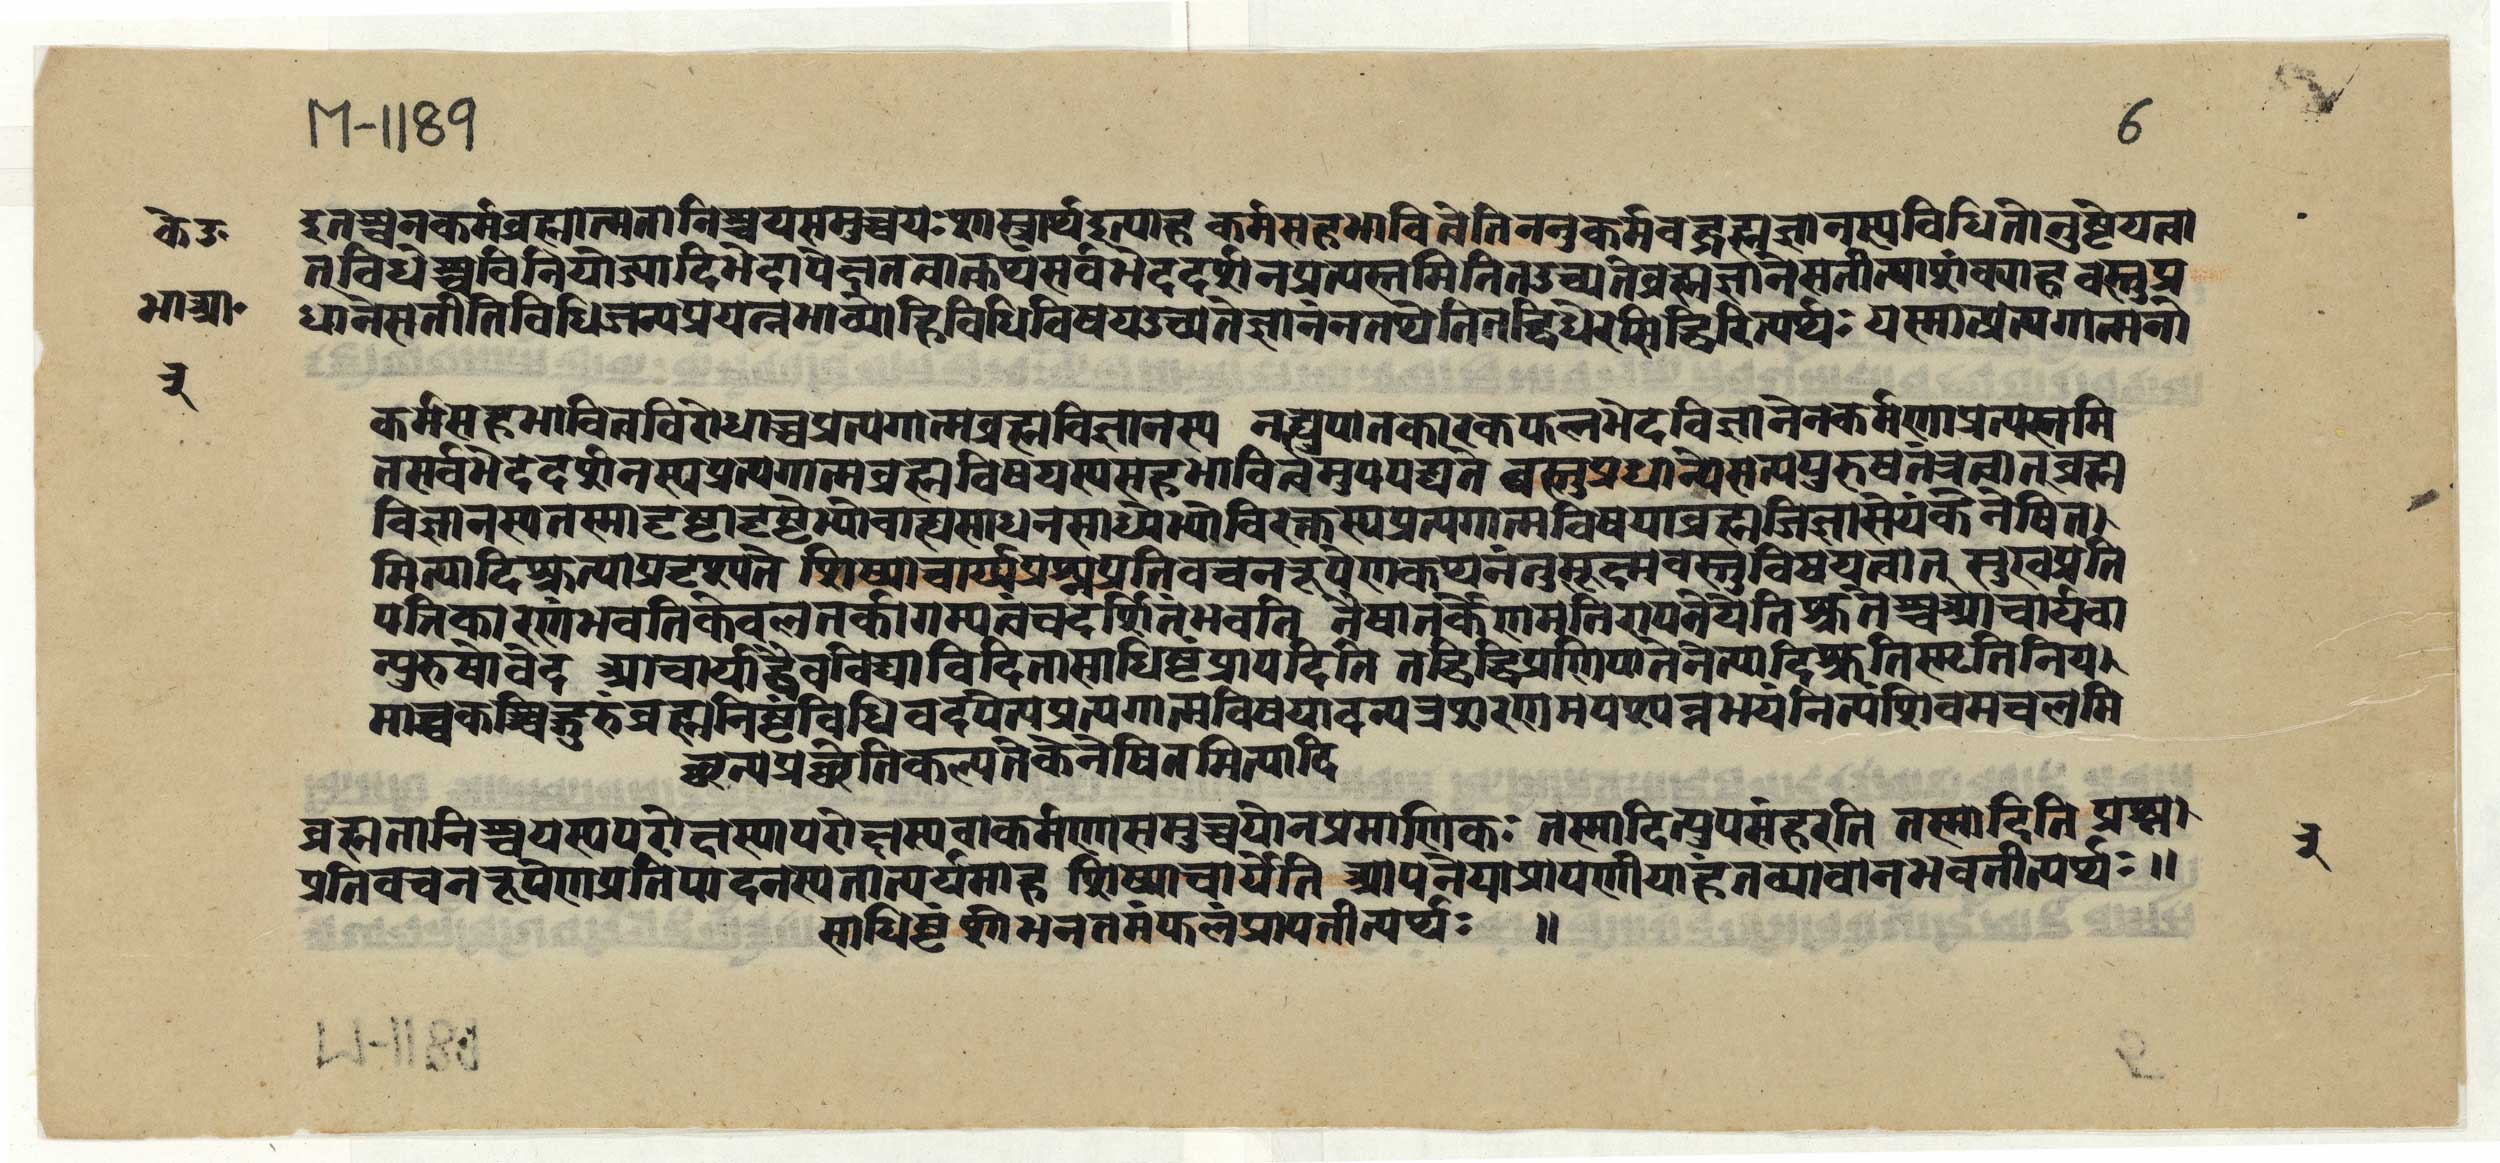 M-1189
6
के उ
भा आ॰
३
इतश्च न कर्मब्रह्मात्मतानिश्चयसमुच्चयः शास्त्रार्थ इत्याह कर्मसहभावित्वेति ननु कर्मवद्ब्रह्मज्ञानस्य विधितोनुष्टेयत्वा
त् विधेश्च विनियोज्यादिभेदापेक्षतत्वात्कथं सर्वभेददर्शनप्रत्यस्तमिति त उच्यते ब्रह्मज्ञाने सतीत्याशंक्याह वस्तुप्र
धाने सतीति विधिजन्यप्रयत्नभाव्यो हि विधिविषय उच्यते ज्ञानं न तथेति तद्विधेरसिद्धिरित्यर्थः यस्मात्प्रत्यगात्मनो
कर्मसहभावित्वविरोधाच्च प्रत्यगात्मब्रह्मविज्ञानस्य नह्युपातकारकफलभेदविज्ञानेन कर्मणा प्रत्यस्तमि
तसर्वभेददर्शनस्य प्रत्यगात्मब्रह्मविषयस्य सहभावित्वमुपपद्यते वस्तुप्रधान्ये सत्यपुरुषतंत्रत्वात् ब्रह्म
विज्ञानस्य तस्मादृष्टादृष्टेभ्यो बाह्यसाधनसाध्येभ्यो विरक्तस्य प्रत्यगात्मविषया ब्रह्मजिज्ञासेयं केनेषित।
मित्यादिश्रुत्या प्रदृश्यते शिष्याचार्य्यप्रश्नप्रतिवचनरूपेण कथनं तु सूक्ष्मवस्तुविषयत्वात् सुखप्रति
पत्तिकारणं भवति केवलतर्कागम्यत्वं च दर्शितं भवति नैषा तर्केण मतिरापनेयेति श्रुतेश्च आचार्यवा
न्पुरुषो वेद आचार्याद्धैव विद्या विदिता साधिष्टं प्रापदिति तद्विद्धि प्रणिपातेनेत्यादिश्रुतिस्मृतिनिय।
माच्च कश्चिद्गुरुं ब्रह्मनिष्टं विधिवदपेत्य प्रत्यगात्मविषयादन्यत्र शरणमपश्यन्नभयं नित्यं शिवमचलमि
च्छन्पप्रच्छेति कल्पते केनेषितमित्यादि
ब्रह्मतानिश्चयस्य परोक्षस्यापरोक्षस्य वा कर्मणा समुच्चयो न प्रमाणिकः तस्मादित्युपसंहरति तस्मादिति प्रश्न।
प्रतिवचनरूपेण प्रतिपादनस्य तात्पर्यमाह शिष्याचार्येति आपनेया प्रापणीया हंतव्या वा न भवतीत्यर्थः॥
साधिष्टं शोभनतमं फलं प्रापतीत्यर्थः ॥
३